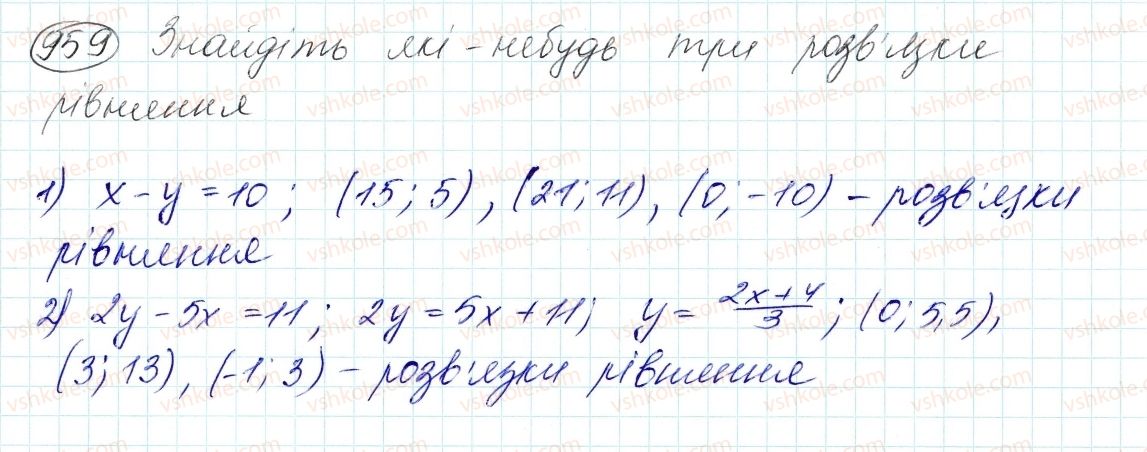 959 Знайдіть які-небудь три розв'язки
рівняння
1) x - y = 10; (15; 5), (21; 11), (0; -10) - розв'язки
рівняння
2) 2y - 5x = 11; 2y = 5x + 11; y = \frac{2x+4}{3}; (0; 5,5),
(3; 13), (-1; 3) - розв'язки рівняння